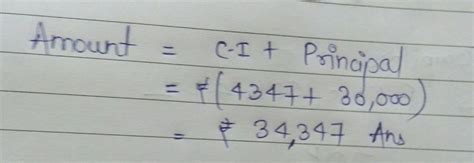 Amount = C.I + Principal
= ₹(4347+ 30,000)
= ₹ 34,347 Ans